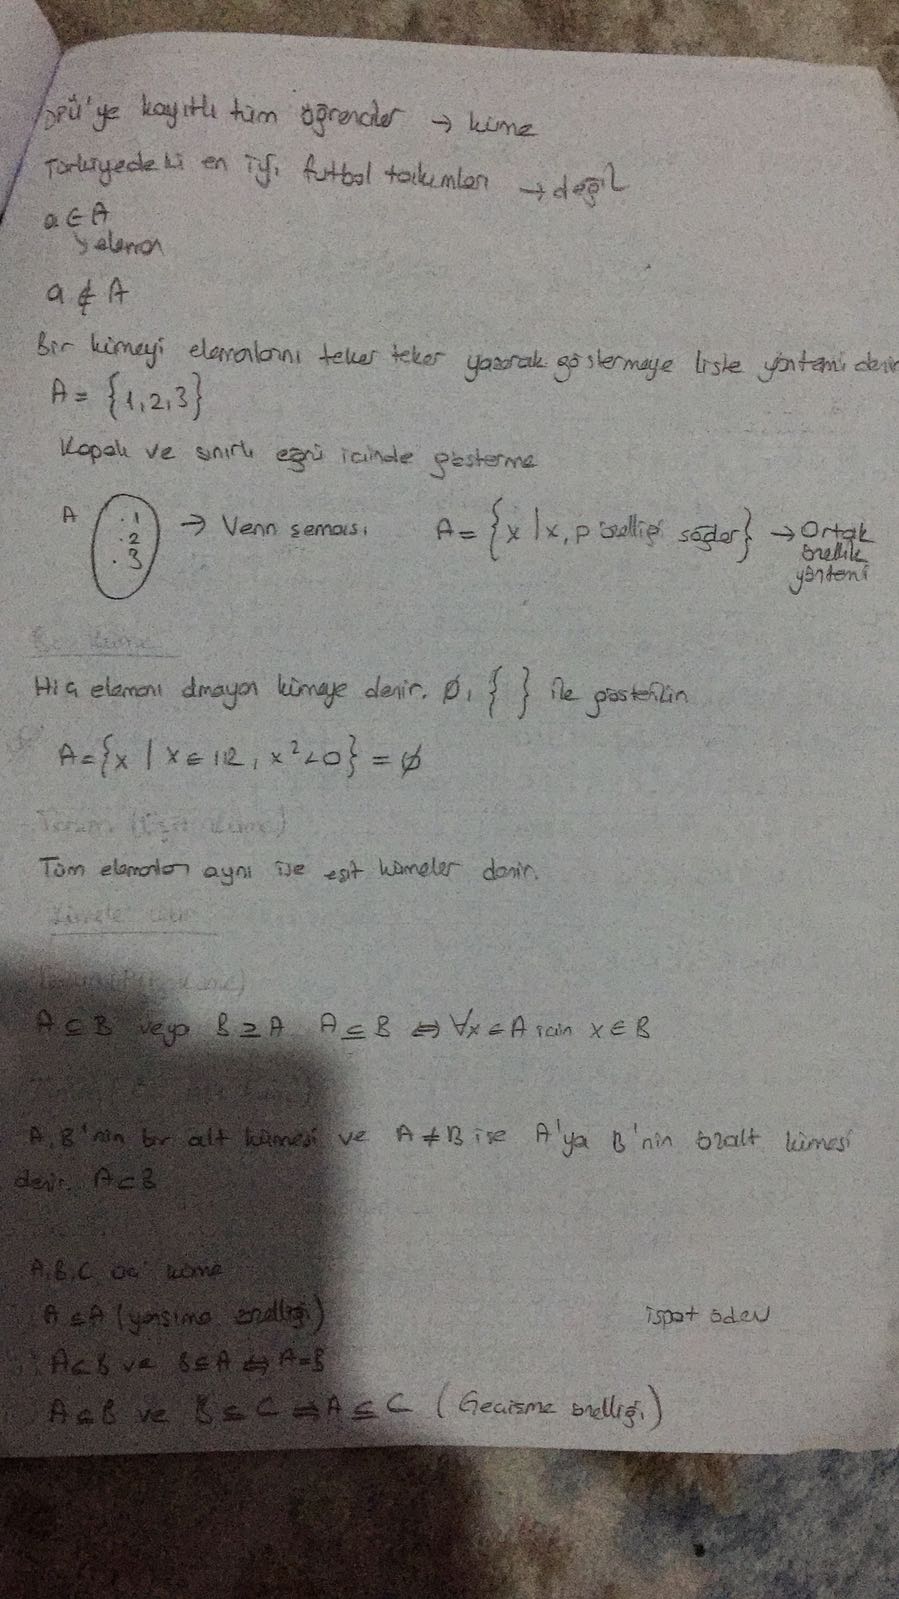 DPÜ'ye kayıtlı tüm öğrenciler → küme
Türkiyedeki en iyi futbol takımları → değil
a ∈ A
↘ eleman
a ∉ A
Bir kümeyi elemanlarını teker teker yazarak göstermeye liste yöntemi denir
A = {1,2,3}
Kapalı ve sınırlı eğri içinde gösterme
A .1 .2 .3 → Venn şeması A = {x | x, p özelliği sağlar} → Ortak
özellik
yöntemi
Boş küme
Hiç elemanı olmayan kümeye denir. ∅, { } ile gösterilir
A = {x | x ∈ IR, x² < 0} = ∅
Tanım (Eşit küme)
Tüm elemanları aynı ise eşit kümeler denir.
A ⊆ B veya B ⊇ A A ⊆ B ⇔ ∀x ∈ A için x ∈ B
A, B'nin bir alt kümesi ve A ≠ B ise A'ya B'nin özalt kümesi
denir. A ⊂ B
A, B, C üç küme
A ⊆ A (yansıma özelliği) ispat ödev
A ⊆ B ve B ⊆ A ⇔ A = B
A ⊆ B ve B ⊆ C ⇒ A ⊆ C (Geçişme özelliği)